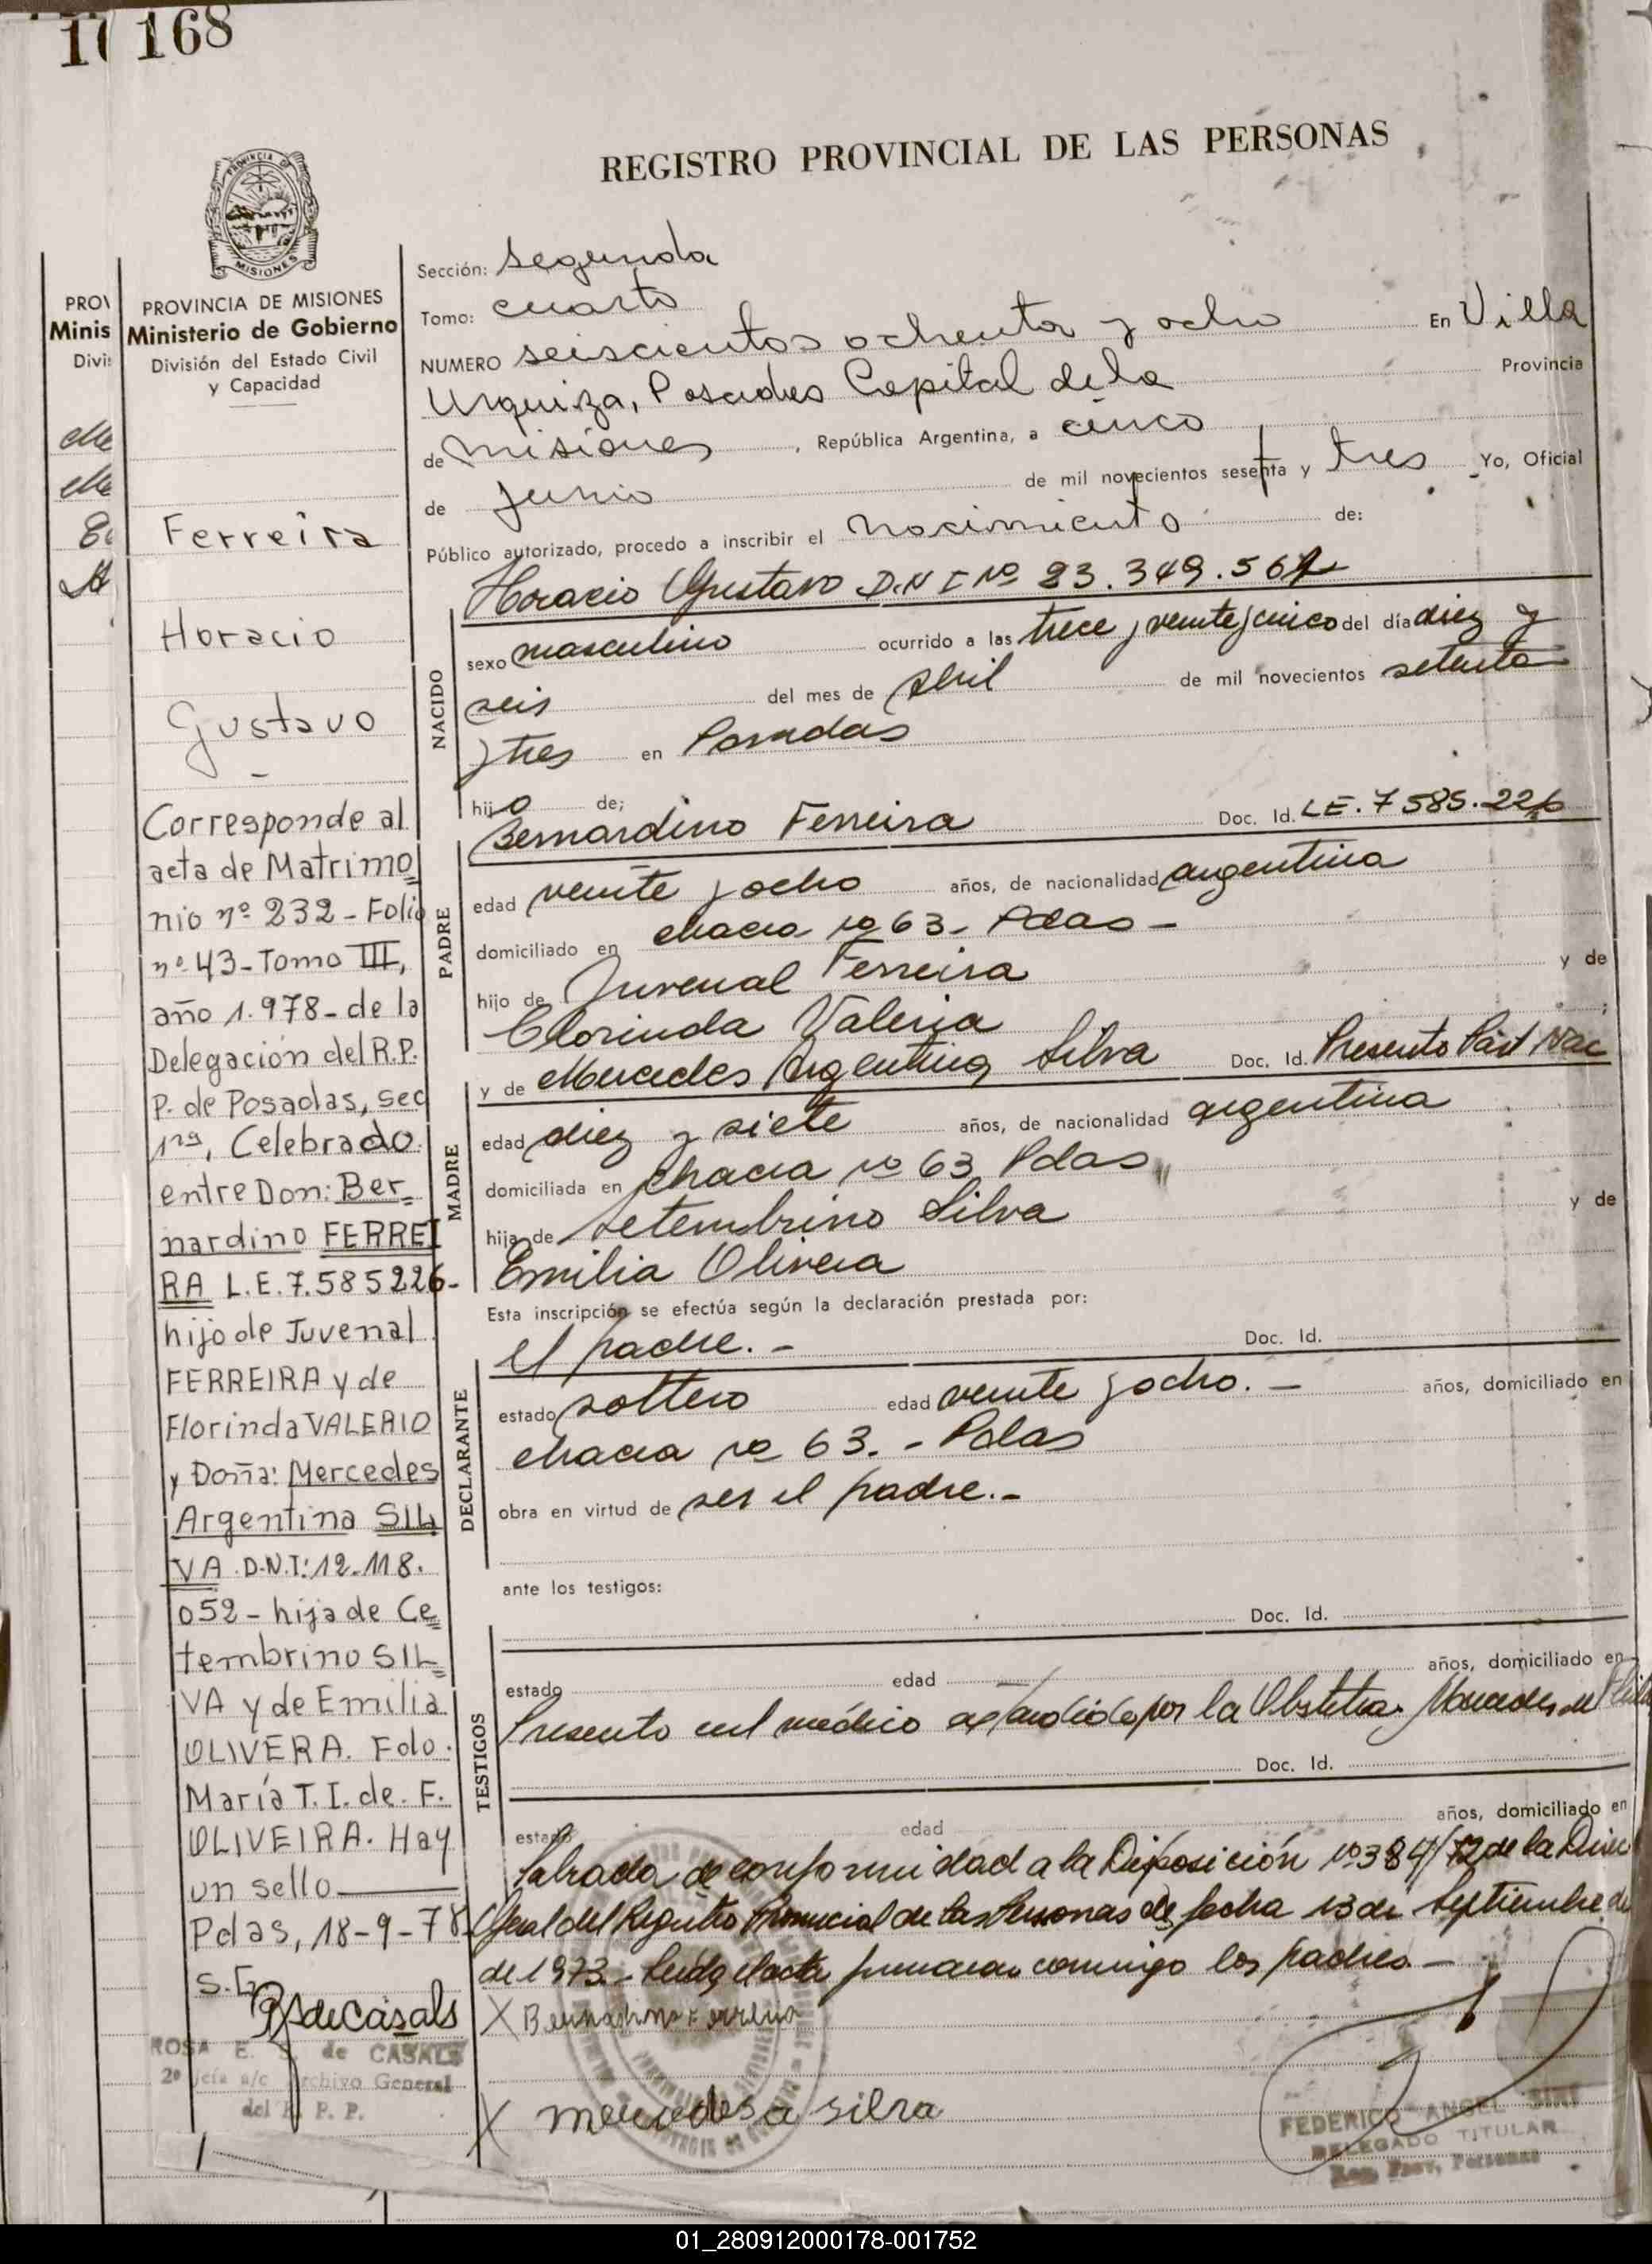 168
REGISTRO PROVINCIAL DE LAS PERSONAS
PROVINCIA DE MISIONES
Ministerio de Gobierno
División del Estado Civil
y Capacidad
Ferreira
Horacio
Gustavo
Corresponde al
acta de Matrimo
nio nº 232 - Folio
nº 43 - Tomo III,
año 1.978 - de la
Delegación del R.P.
P. de Posadas, sec
1ra, Celebrado
entre Don: Ber
nardino FERREI
RA L.E. 7.585226-
hijo de Juvenal
FERREIRA y de
Florinda VALERIO
y Doña: Mercedes
Argentina SIL
VA D.N.I: 12.118.
052 - hija de Ce
tembrino SIL
VA y de Emilia
OLIVERA. Fdo.
María T. I. de. F.
OLIVEIRA. Hay
un sello
Pdas, 18-9-78
ROSA E. S. de CASALS
2º Jefa a/c Archivo General
del R. P. P.
Sección: Segunda
Tomo: cuarto
NUMERO seiscientos ochenta y ocho En Villa
Urquiza, Posadas Capital de la Provincia
de misiones, República Argentina, a cinco
de junio de mil novecientos sesenta y tres Yo, Oficial
Público autorizado, procedo a inscribir el nacimiento de:
Horacio Gustavo D.N I Nº 23.349.567
NACIDO
sexo masculino ocurrido a las trece y veinte y cinco del día diez y
seis del mes de Abril de mil novecientos setenta
y tres en Posadas
hijo de;
PADRE
Bernardino Ferreira Doc. Id. LE. 7 585.226
edad veinte y ocho años, de nacionalidad argentina
domiciliado en chacra nº 63 - Pdas -
hijo de Juvenal Ferreira y de
Clorinda Valeria ;
MADRE
y de Mercedes Argentina Silva Doc. Id. Presento Part Nac
edad diez y siete años, de nacionalidad argentina
domiciliada en chacra nº 63 Pdas
hija de Setembrino Silva y de
Emilia Olivera
Esta inscripción se efectúa según la declaración prestada por:
DECLARANTE
el padre. - Doc. Id.
estado soltero edad veinte y ocho. - años, domiciliado en
chacra nº 63. - Pdas
obra en virtud de ser el padre. -
ante los testigos:
TESTIGOS
Doc. Id.
estado edad años, domiciliado en
Presento cert médico expedido por la Obstetra Mercedes de
Doc. Id.
estado edad años, domiciliado en
Labrada de conformidad a la Disposición nº 384/72 de la Direc
Gral del Registro Provincial de las Personas de fecha 13 de Septiembre de
de 1973 - Leída el acta firmaran conmigo los padres. -
X Bernardino Ferreira
X mercedes a silva
FEDERICO ANGEL
DELEGADO TITULAR
Reg. Prov. Personas
01_280912000178-001752